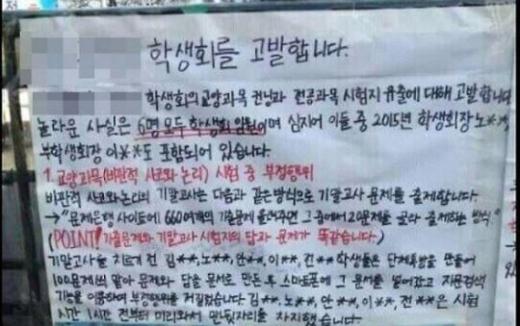 학생회를 고발합니다.
학생회의 교양과목 컨닝과 전공과목 시험지 유출에 대해 고발합니다
놀라운 사실은 6명 모두 학생회 임원이며 심지어 이들 중 2015년 학생회장 노**,
부학생회장 이**도 포함되어 있습니다.
1. 교양과목(비판적 사고와 논리) 시험 중 부정행위
비판적 사고와 논리의 기말고사는 다음과 같은 방식으로 기말고사 문제를 출제합니다.
→"문제은행 사이트에 660여개의 기출문제 올려주면 그 중에서 20문제를 골라 출제하는 방식"
(POINT! 기출문제와 기말고사 시험지의 답과 문제가 똑같습니다.)
기말고사를 치르기 전 김**, 노**, 안**, 이**, 전** 학생들은 단체톡방을 만들어
100문제씩 맡아 문제와 답을 문서로 만든 후 스마트폰에 그 문서를 넣어놓고 지문검색
기능을 이용하여 부정행위를 저질렀습니다. 김**, 노**, 안**, 이**, 전**은 시험
시간 1시간 전부터 미리와서 맨뒷자리를 차지했습니다.